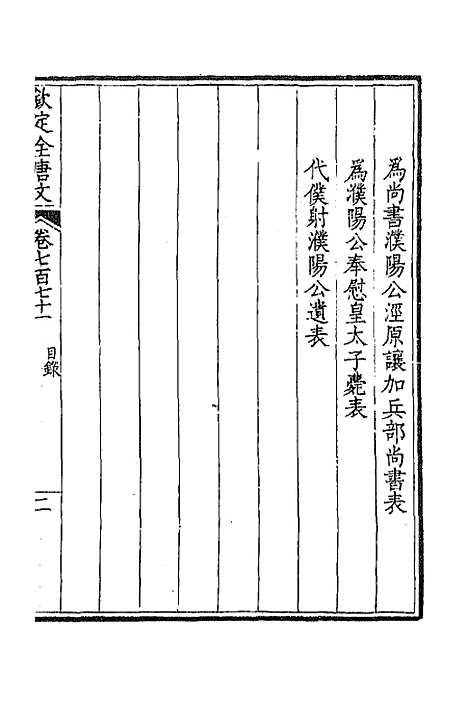 爲尚書濮陽公涇原讓加兵部尚書表
爲濮陽公奉慰皇太子薨表
代僕射濮陽公遺表
欽定全唐文
卷七百七十一
目錄
二